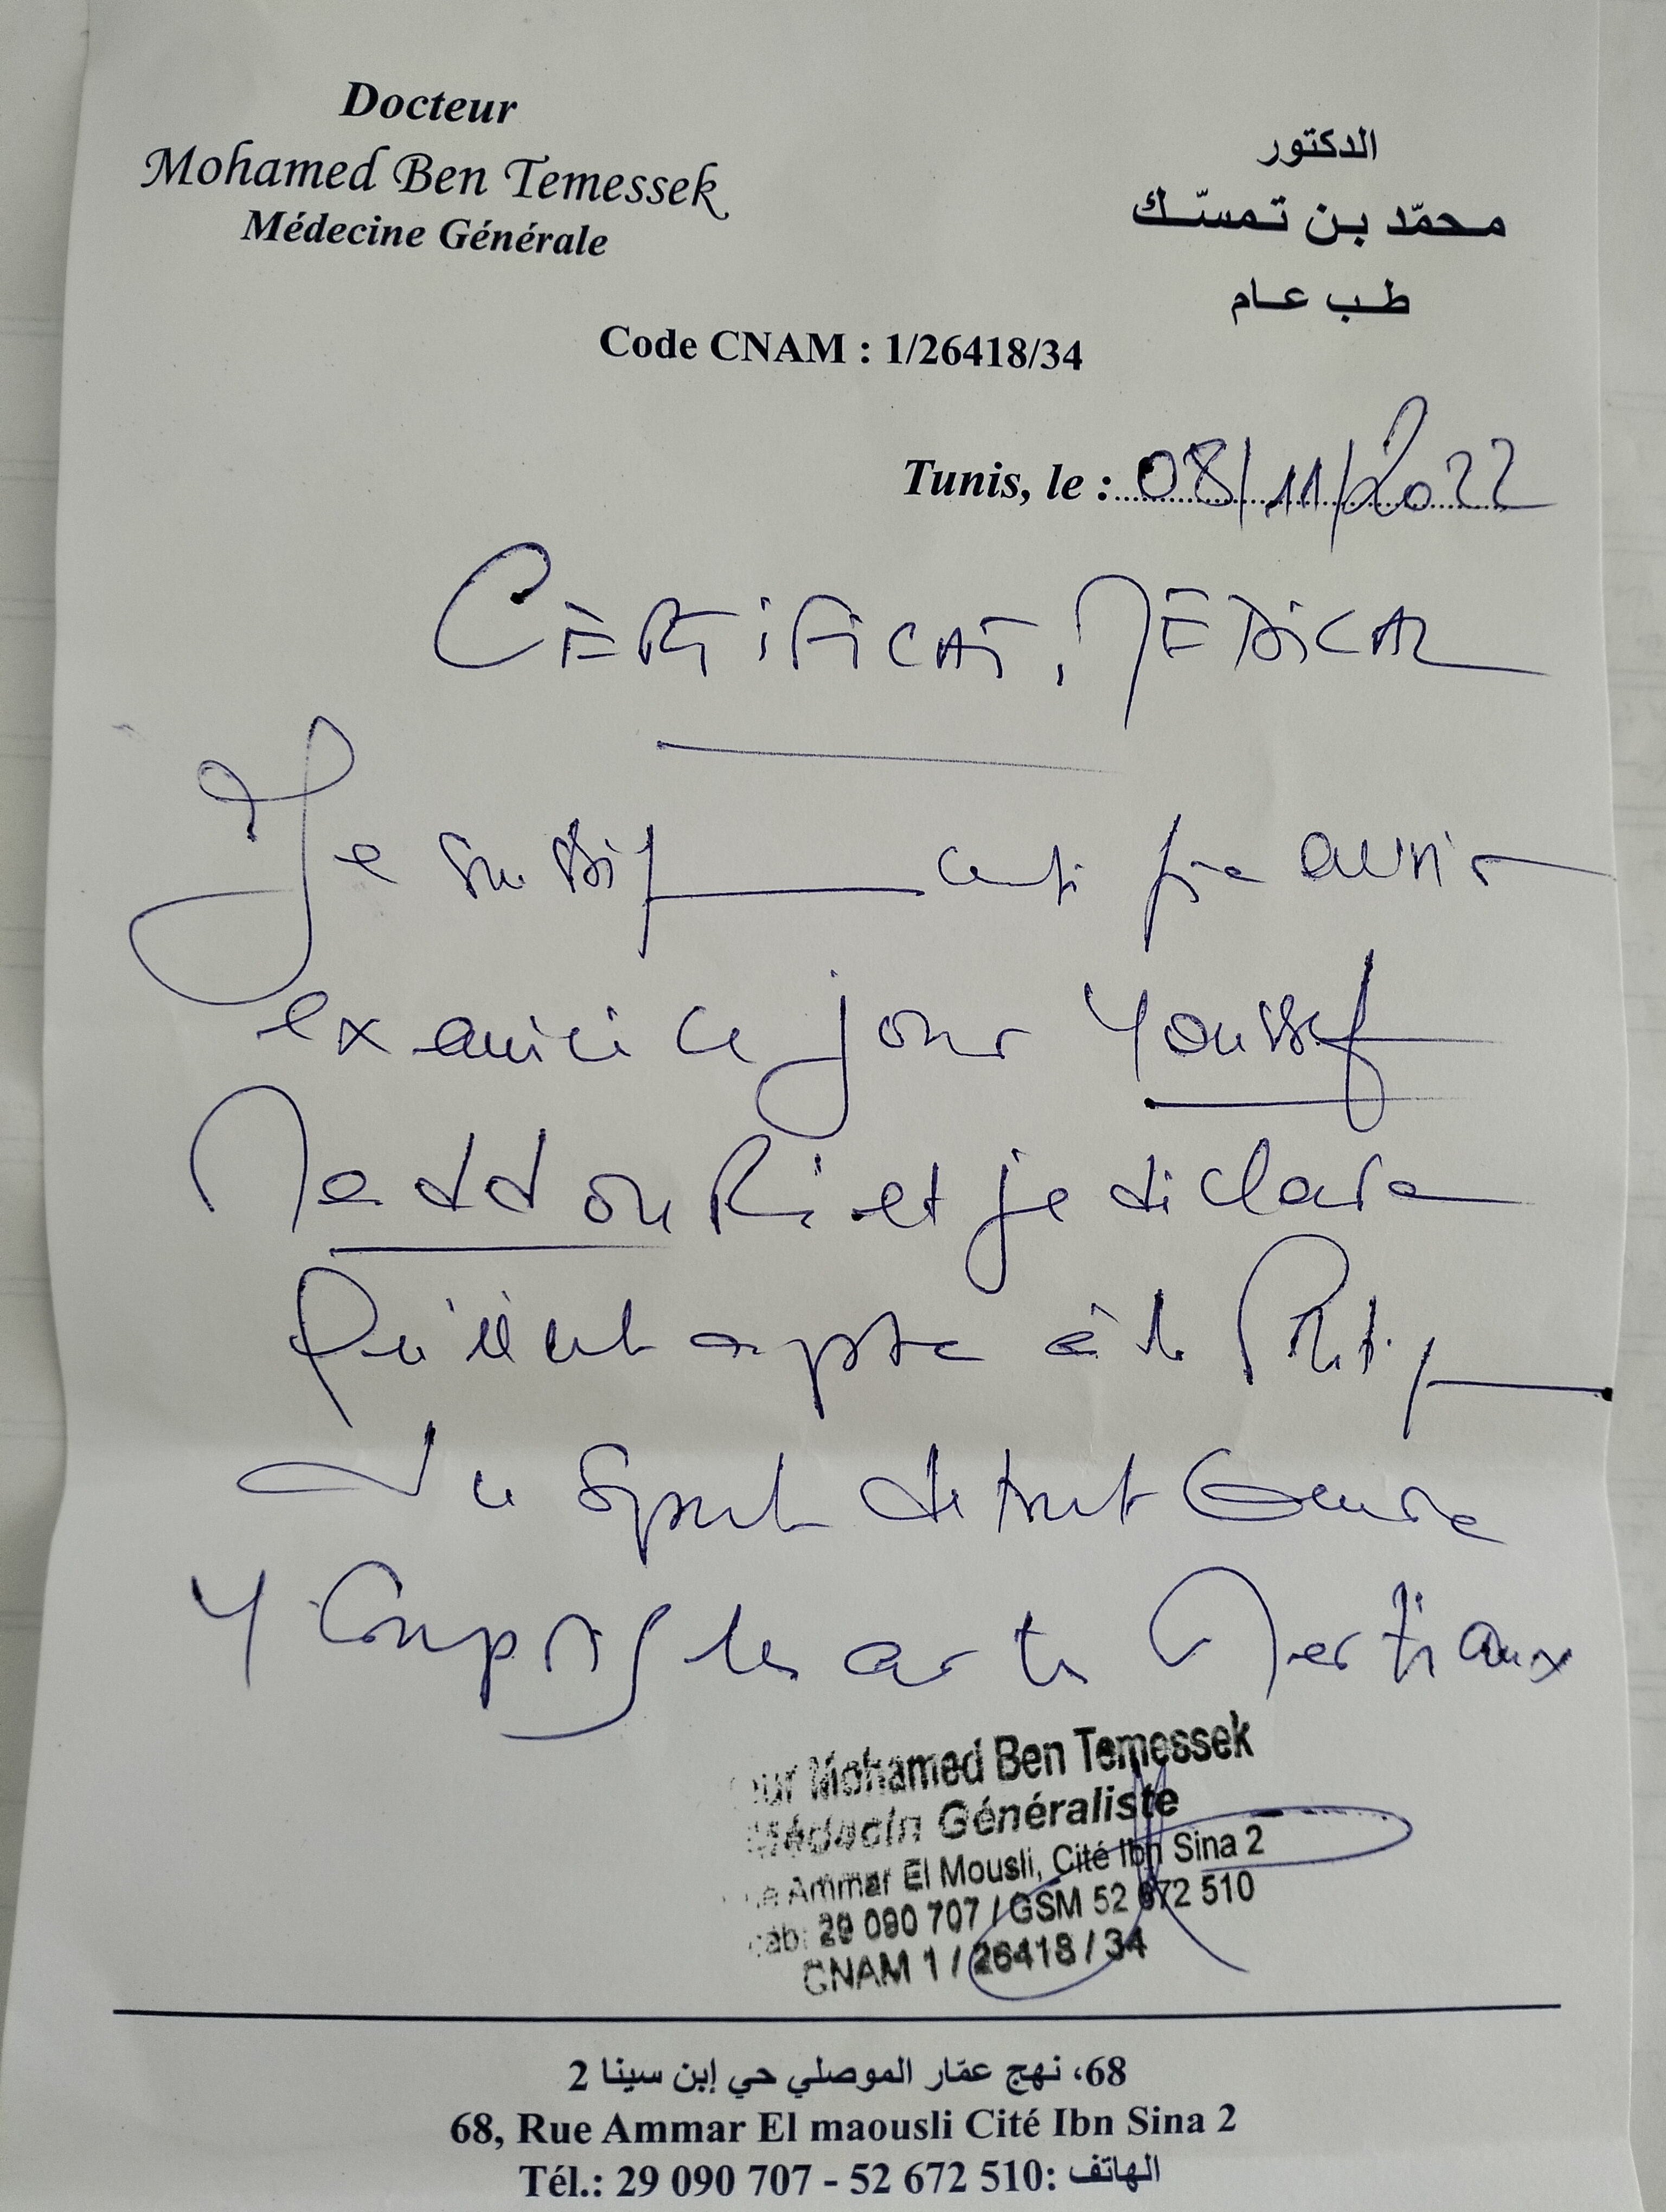 Docteur
Mohamed Ben Temessek
Médecine Générale
الدكتور
محمّد بن تمسّك
طب عام
Code CNAM : 1/26418/34
Tunis, le : 08/11/2022
CERTIFICAT MEDICAL
Je soussigné certifie avoir
examiné ce jour Youssef
Neddouri et je déclare
qu'il est apte à la pratique
du sport de tout genre
Y compris les arts Martiaux
Mohamed Ben Temessek
Médecin Généraliste
Ammar El Mousli, Cité Ibn Sina 2
Cab: 29 090 707 / GSM 52 672 510
CNAM 1 / 26418 / 34
68، نهج عمّار الموصلي حي إبن سينا 2
68, Rue Ammar El maousli Cité Ibn Sina 2
Tél.: 29 090 707 - 52 672 510 :الهاتف